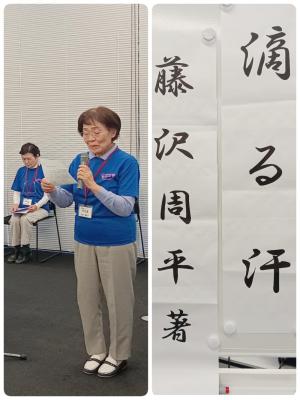 滴る汗
藤沢周平著